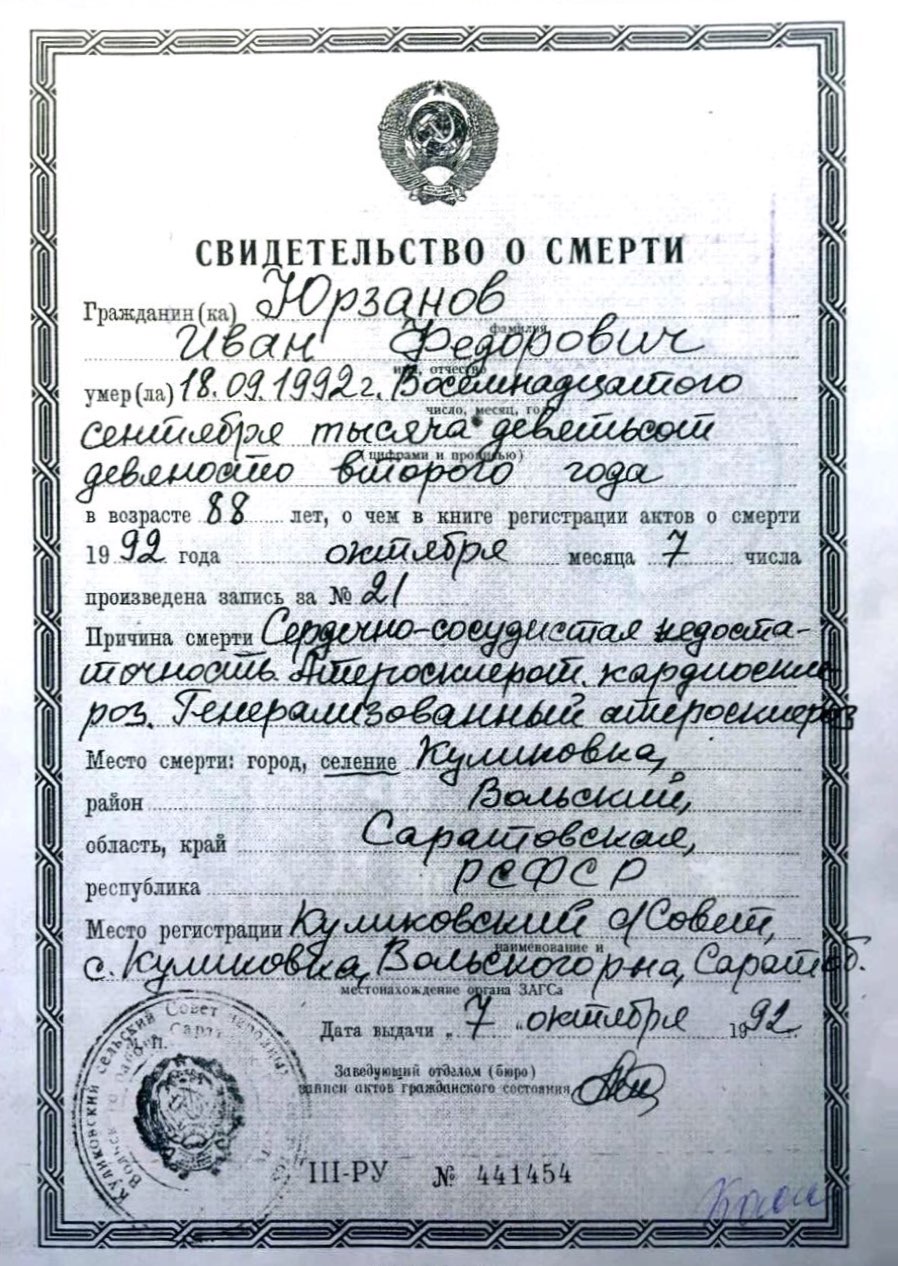 СВИДЕТЕЛЬСТВО О СМЕРТИ
Гражданин(ка) Юрзанов
фамилия
Иван Федорович
имя, отчество
умер(ла) 18.09.1992г. Восемнадцатого
число, месяц, год
сентября тысяча девятьсот
(цифрами и прописью)
девяносто второго года
в возрасте 88 лет, о чем в книге регистрации актов о смерти
1992 года октября месяца 7 числа
произведена запись за № 21
Причина смерти Сердечно-сосудистая недоста-
точность. Атеросклерот. кардиоскле-
роз. Генерализованный атеросклероз
Место смерти: город, селение Куликовка,
район Вольский,
область, край Саратовская,
республика РСФСР
Место регистрации Куликовский с/Совет,
наименование и
с. Куликовка, Вольского р-на, Сарат. об.
местонахождение органа ЗАГСа
Дата выдачи „7" октября 1992
Заведующий отделом (бюро)
записи актов гражданского состояния
Куликовский сельский Совет народных
III-РУ № 441454